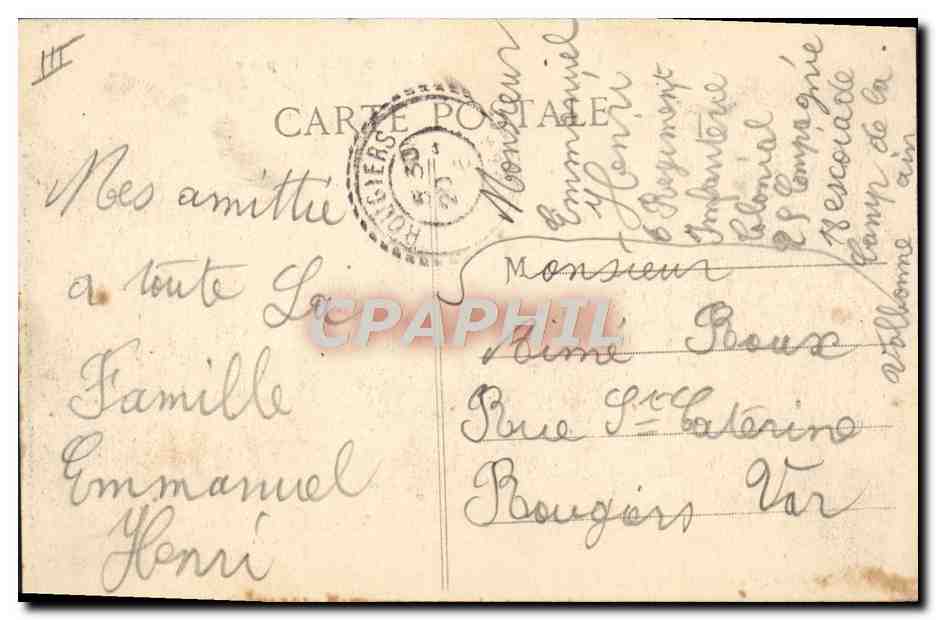 III
CARTE POSTALE
ROUGIERS
5 30
20
Mes amittié
a toute La
Famille
Emmanuel
Henri
Monsieur
Emmanuel
Henri
6 Regiment
Infanterie
Colonial
28 Compagnie
7 escouade
Camp de la
Valbonne ain
Monsieur
Aimé Roux
Rue Ste Caterine
Rougiers Var
CPAPHIL